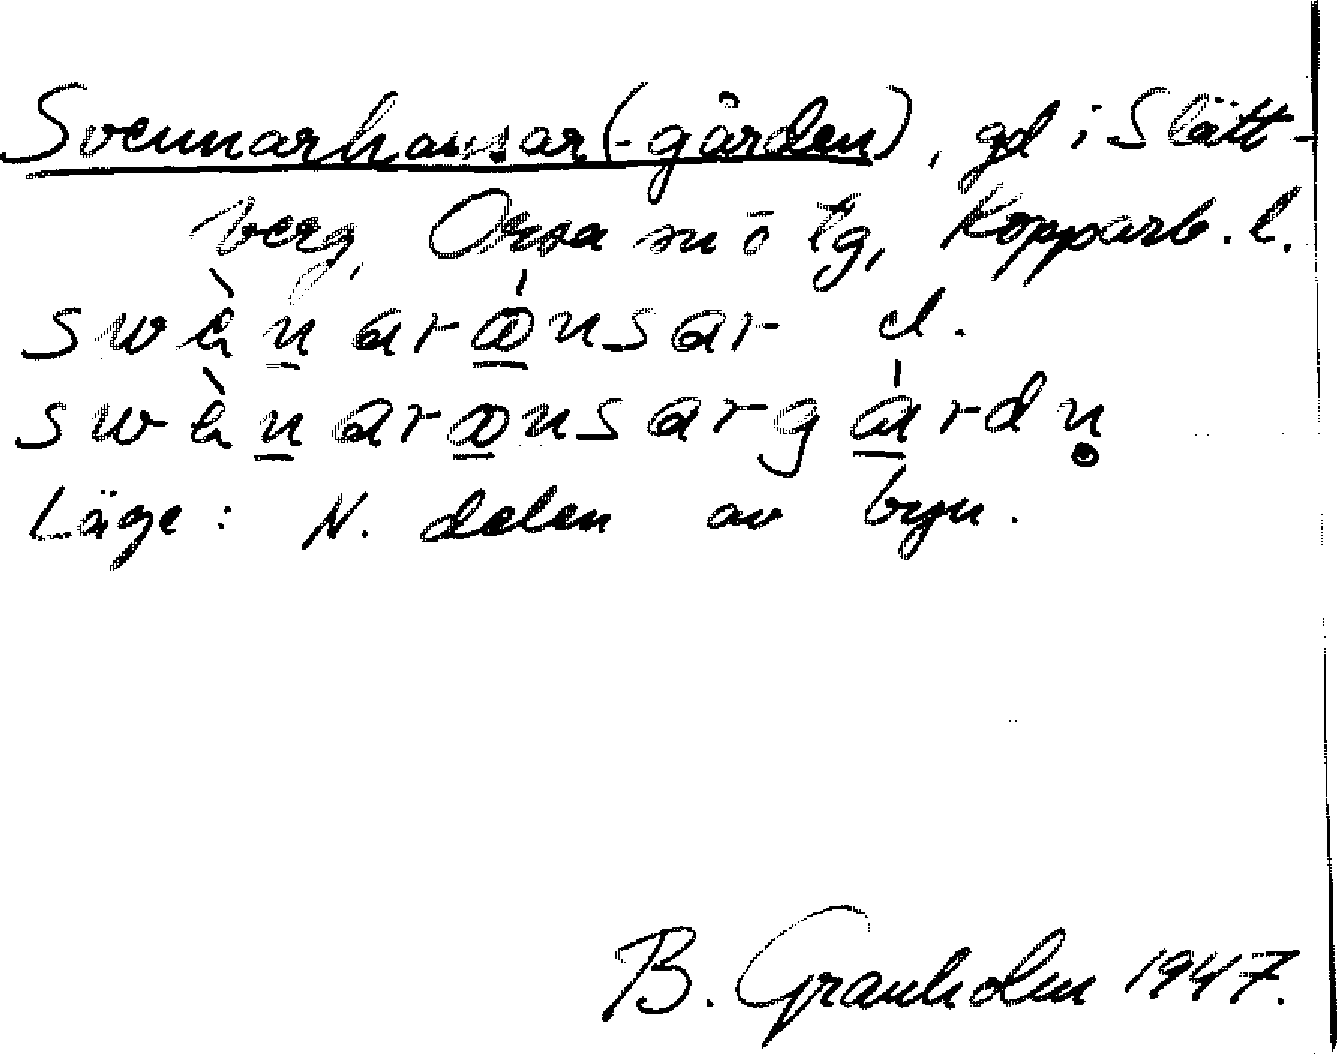 Svennarhansar(-gården), gd i Slätt-
berg, Orsa sn o tg, Kopparb. l.
swὲn̲arώ̲nsar el.
swὲn̲arω̲nsargá̲rdn̥
Läge: N. delen av byn.
B. Granholm 1947.